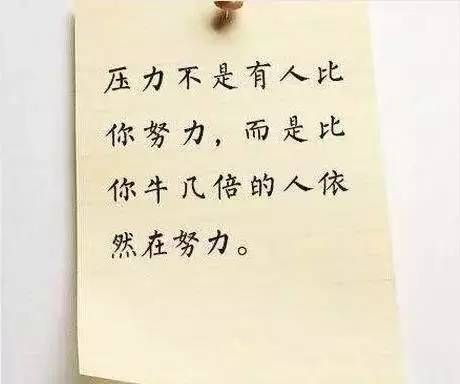 压力不是有人比
你努力，而是比
你牛几倍的人依
然在努力。